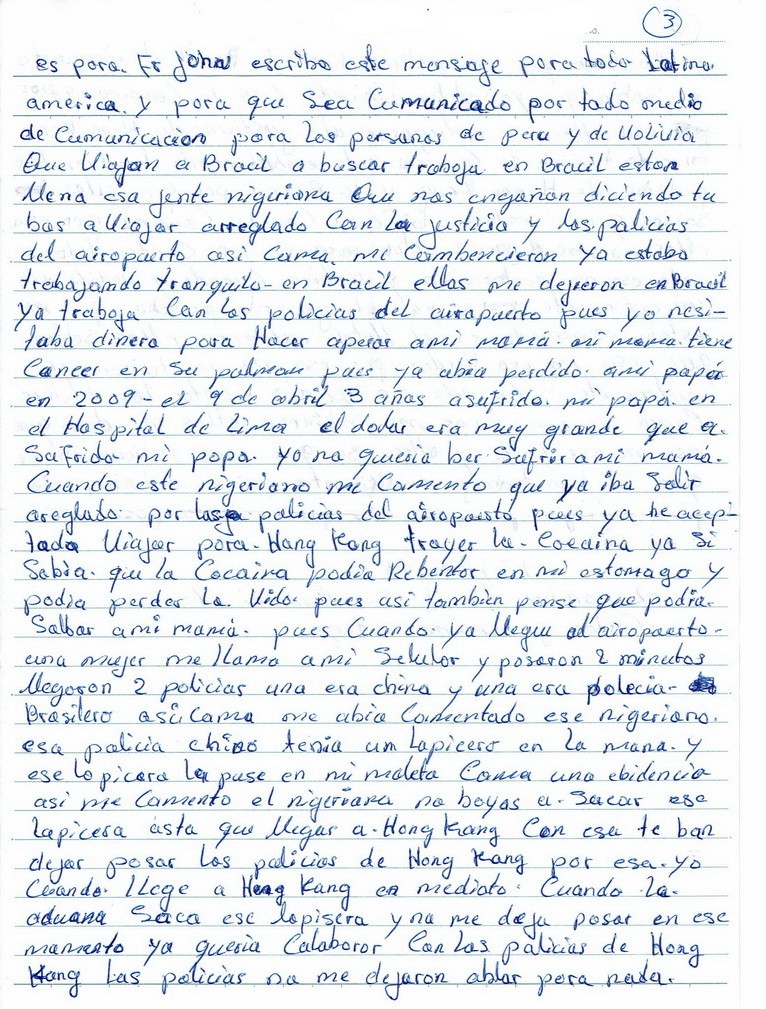 (3)
es para. Fr John escribo este mensaje para todo Latino
america. y para que Sea Cumunicado por todo medio
de Cumunicacion para los personas de peru y de Volivia
Que Viajan a Bracil a buscar trabajo en Bracil eston
Llena esa jente nigeriana Que nos engañan diciendo tu
bas a Viajar arreglado Con la justicia y los policias
del airopuerto asi Como. mi Combencieron Ya estaba
trabajando tranquilo - en Bracil ellos me dejeron en Bracil
Ya trabajo Con los policias del airopuerto pues yo nesi-
taba dinero para Hacer aperas ami mamá. mi mama. tiene
Cancer en Su pulmon pues ya abia perdido. ami papá
en 2009 - el 9 de abril 3 años asufrido. mi papá. en
el Hospital de Lima el dolar era muy grande que a.
Sufrido mi papa. yo no queria ber Sufrir ami mamá.
Cuando este nigeriano me Comento que ya iba Salir
areglado. por los policias del airopuerto pues ya he acep-
tado Viajar para. Hong Kong trayer la. Cocaina ya Si
Sabia. que la Cocaina podia Rebentor en mi estomago y
podia perder La. Vida. pues asi tambien pense que podia.
Salbar ami mamá. pues Cuando. ya llegue al airopuerto -
una mujer me llama ami Selular y posaron 2 minutos
llegaron 2 policias una era china y una era polecia -
Brasilero asi Como me abia Comentado ese nigeriano.
esa policia chino tenia um lapicero en la mano. y
ese lopicero la puse en mi maleta Como una ebidencia
asi me Comento el nigeriano no boyas a. Sacar ese
lapicero asta que llegar a. Hong Kong Con eso te ban
dejar posar los policias de Hong Kong por eso. yo
Cuando. llege a Hong Kang en mediato. Cuando la.
aduana Saca ese lapisero y no me deja posar en ese
momento ya queria Calaboror Con los policias de Hong
Kong Los policias no me dejaron ablar para nada.